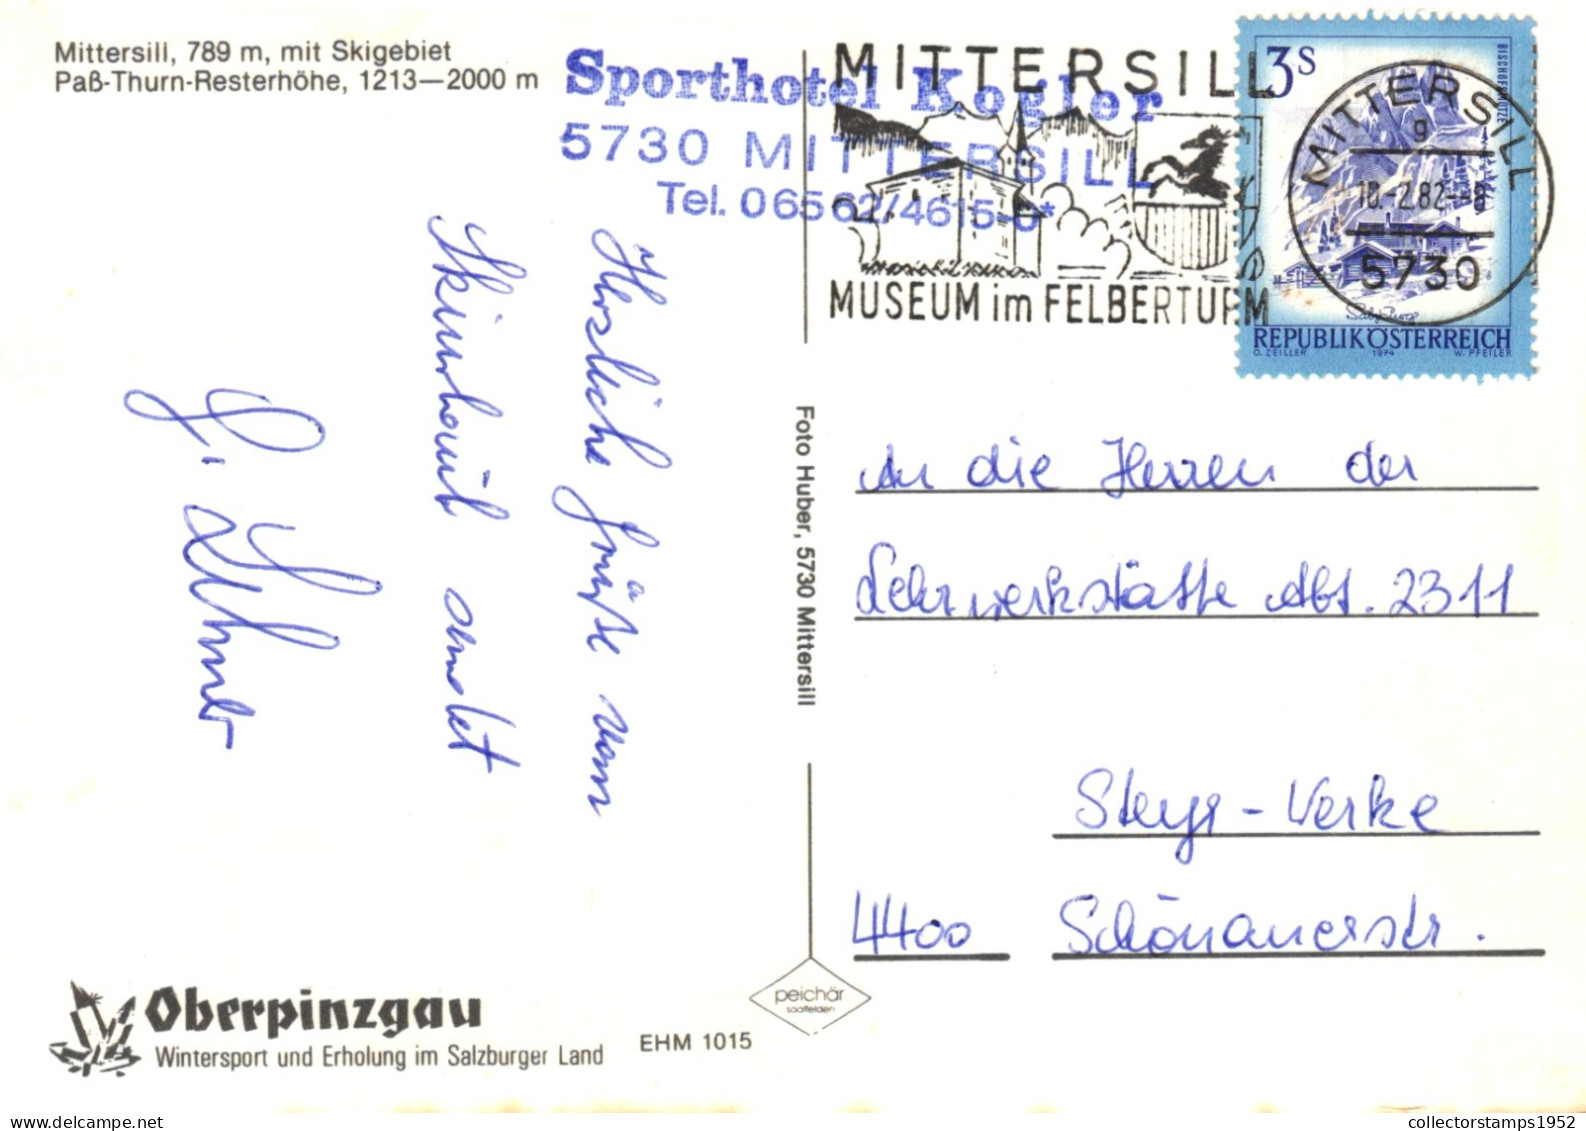 Mittersill, 789 m, mit Skigebiet
Paß-Thurn-Resterhöhe, 1213—2000 m
Sporthotel Kogler
5730 MITTERSILL
Tel. 06562/4615-0*
MITTERSILL
MUSEUM im FELBERTURM
3 S
BISCHOFSMÜTZE
REPUBLIK ÖSTERREICH
O. ZEILLER 1974 W. PFEILER
MITTERSILL
g
10.-2.82-18
5730
Herzliche Grüße vom
Skiurlaub sendet
G. Lehner
Foto Huber, 5730 Mittersill
An die Herren der
Lehrwerkstätte Abt. 2311
Steyr-Werke
4400 Schönauerstr.
Oberpinzgau
Wintersport und Erholung im Salzburger Land
EHM 1015
peichär
saalfelden
collectorstamps1952